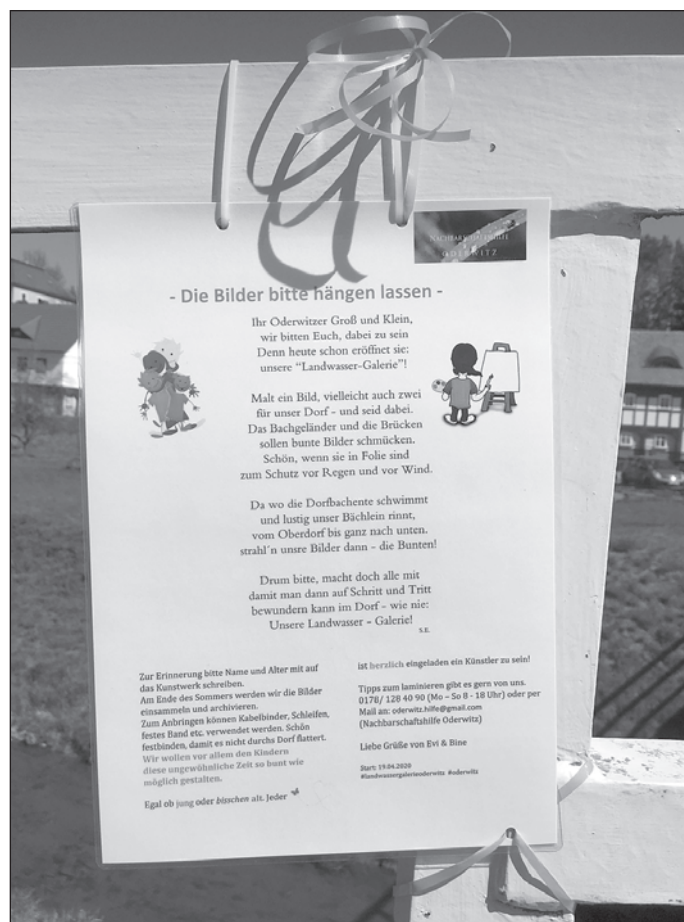 NACHBARSCHAFTSHILFE
ODERWITZ
- Die Bilder bitte hängen lassen -
Ihr Oderwitzer Groß und Klein,
wir bitten Euch, dabei zu sein
Denn heute schon eröffnet sie:
unsere "Landwasser-Galerie"!
Malt ein Bild, vielleicht auch zwei
für unser Dorf - und seid dabei.
Das Bachgeländer und die Brücken
sollen bunte Bilder schmücken.
Schön, wenn sie in Folie sind
zum Schutz vor Regen und vor Wind.
Da wo die Dorfbachente schwimmt
und lustig unser Bächlein rinnt,
vom Oberdorf bis ganz nach unten.
strahl'n unsre Bilder dann - die Bunten!
Drum bitte, macht doch alle mit
damit man dann auf Schritt und Tritt
bewundern kann im Dorf - wie nie:
Unsere Landwasser - Galerie!
S.E.
Zur Erinnerung bitte Name und Alter mit auf
das Kunstwerk schreiben.
Am Ende des Sommers werden wir die Bilder
einsammeln und archivieren.
Zum Anbringen können Kabelbinder, Schleifen,
festes Band etc. verwendet werden. Schön
festbinden, damit es nicht durchs Dorf flattert.
Wir wollen vor allem den Kindern
diese ungewöhnliche Zeit so bunt wie
möglich gestalten.
Egal ob jung oder bisschen alt. Jeder
ist herzlich eingeladen ein Künstler zu sein!
Tipps zum laminieren gibt es gern von uns.
0178/ 128 40 90 (Mo - So 8 - 18 Uhr) oder per
Mail an: oderwitz.hilfe@gmail.com
(Nachbarschaftshilfe Oderwitz)
Liebe Grüße von Evi & Bine
Start: 19.04.2020
#landwassergalerieoderwitz #oderwitz